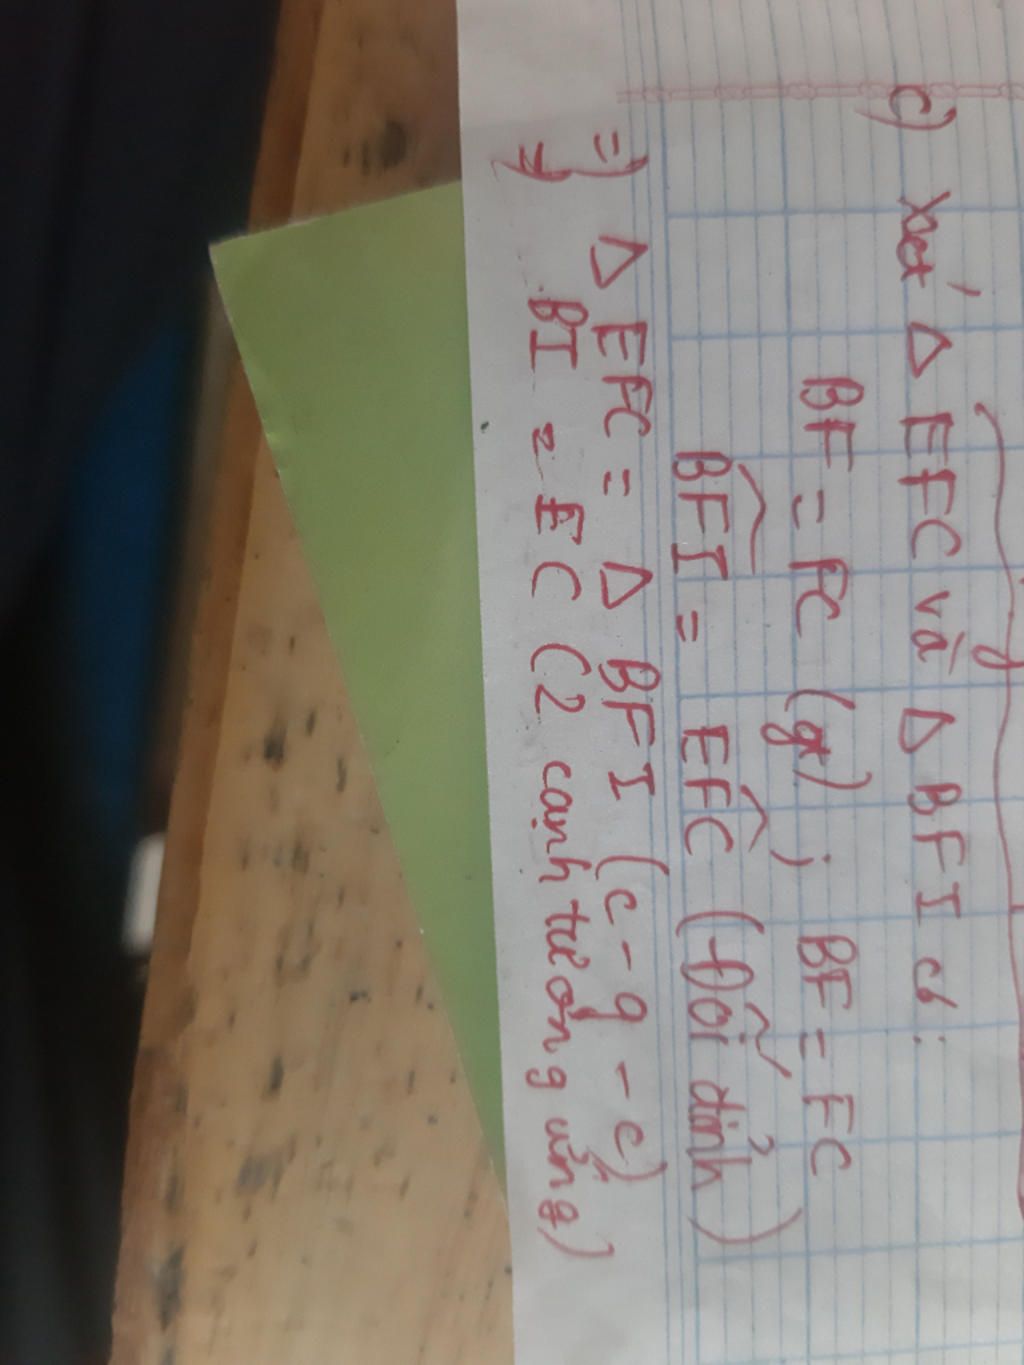 c) xét Δ EFC và Δ BFI có:
BF = FC (gt); BF = FC
BFI = EFC (Đối đỉnh)
=) Δ EFC = Δ BFI (c-g-c)
=) BI = EC (2 cạnh tương ứng)